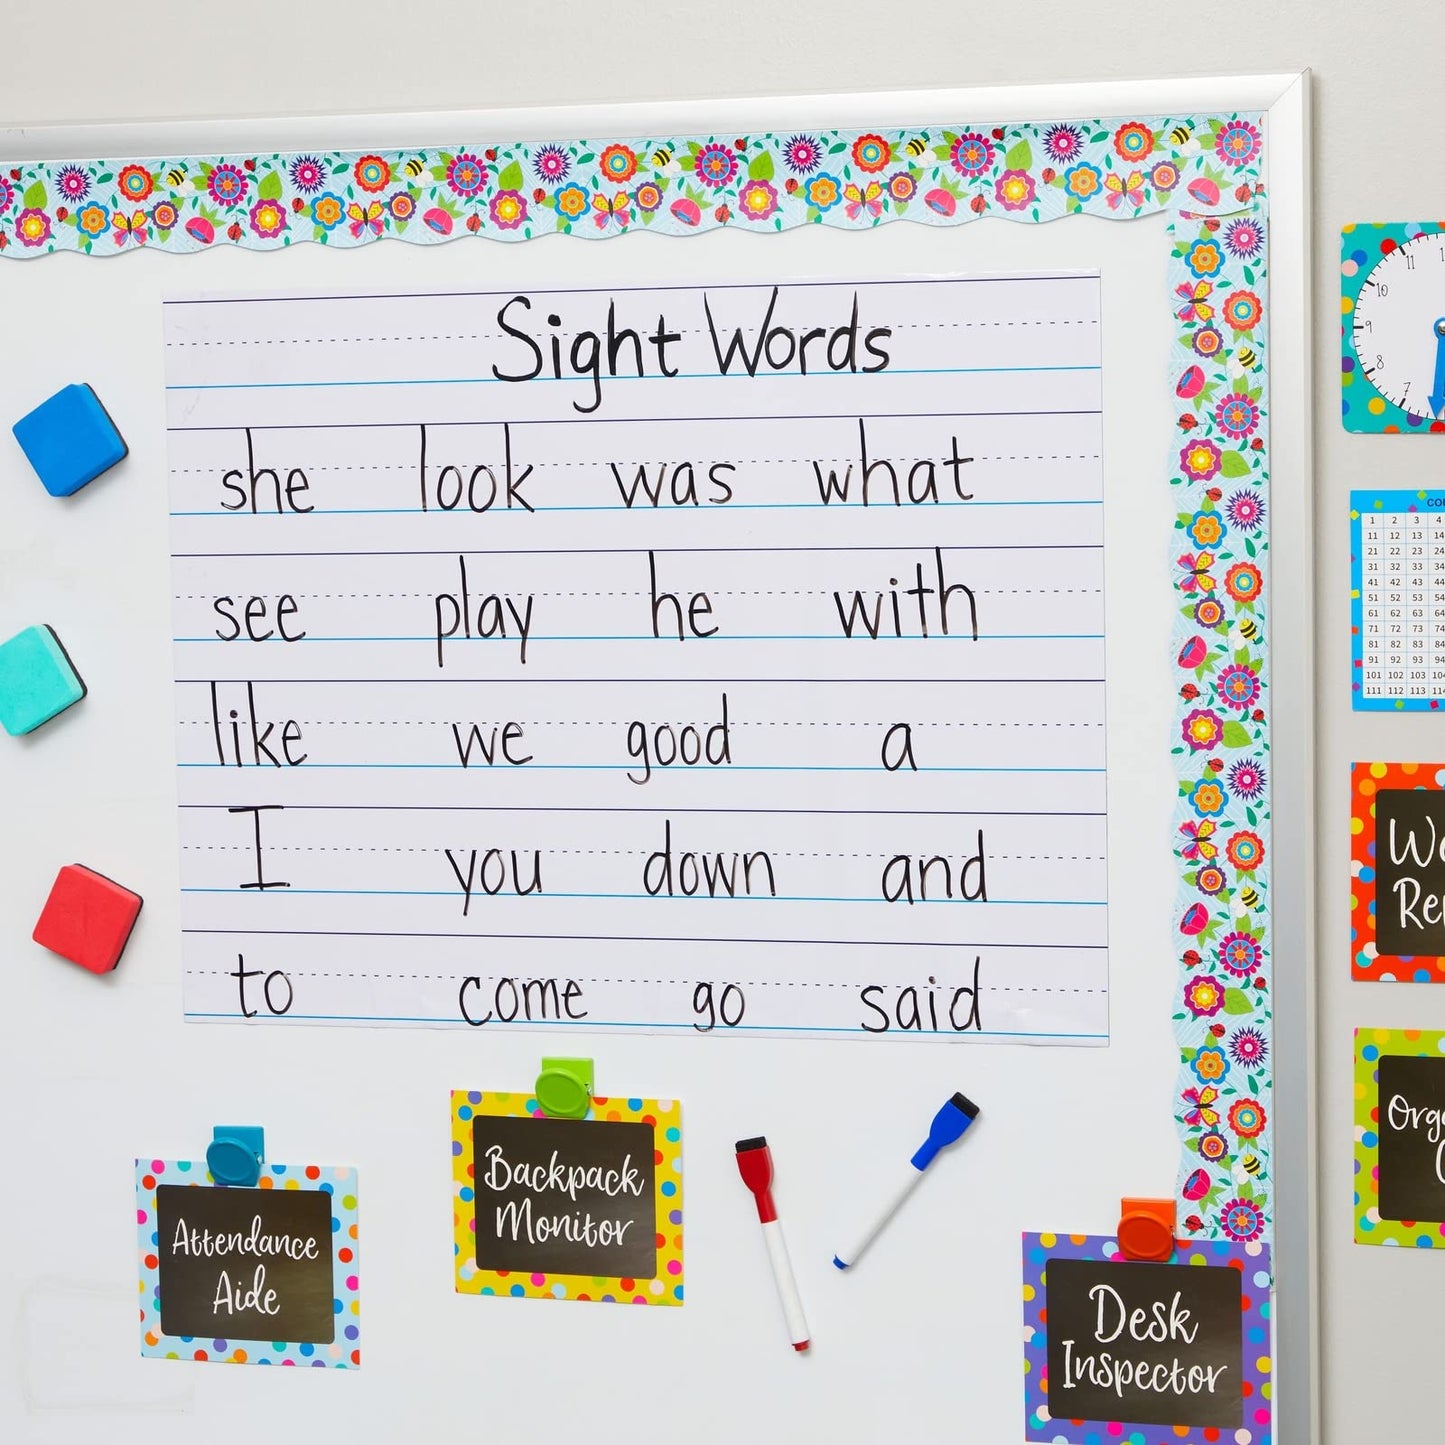 Sight Words
she look was what
see play he with
like we good a
I you down and
to come go said
Attendance
Aide
Backpack
Monitor
Desk
Inspector
11
10
9
8
7
1 2 3 4
11 12 13 14
21 22 23 24
31 32 33 34
41 42 43 44
51 52 53 54
61 62 63 64
71 72 73 74
81 82 83 84
91 92 93 94
101 102 103
111 112 113